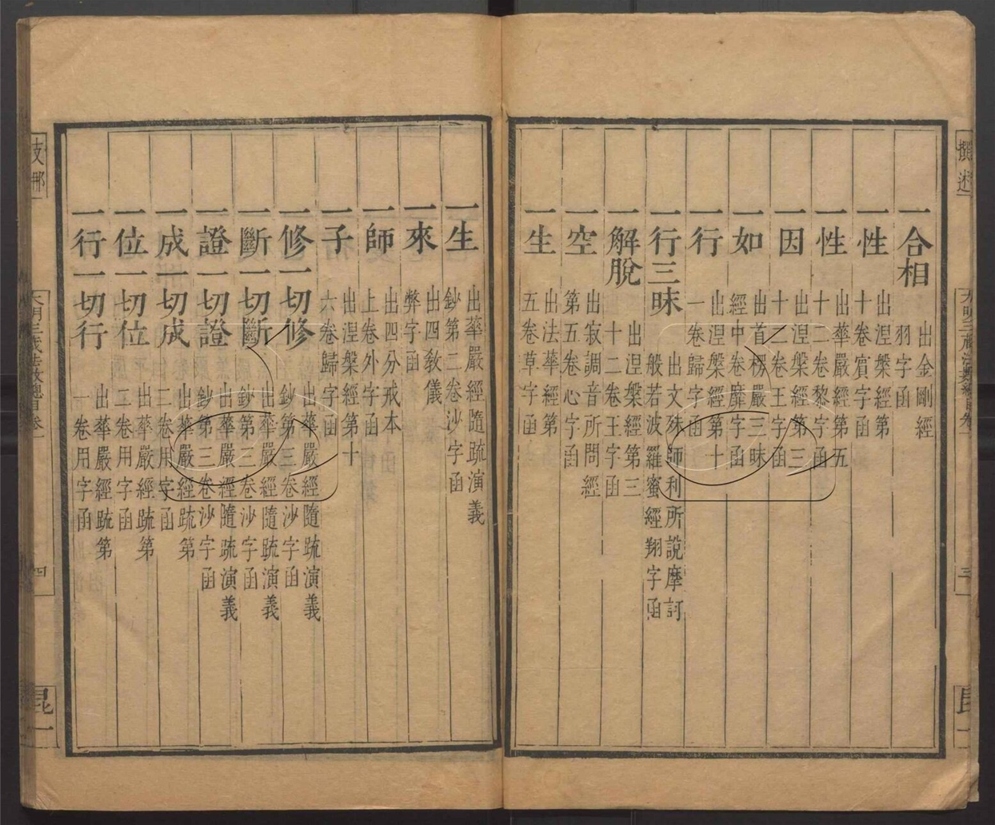 撰述
三
一合相 出金剛經
羽字函
一性 出涅槃經第
十卷賓字函
一性 出華嚴經第五
十二卷黎字函
一因 出涅槃經第三
十二卷王字函
一如 出首楞嚴三昧
經中卷靡字函
一行 出涅槃經第十
一卷歸字函
一行三昧 出文殊師利所說摩訶
般若波羅蜜經翔字函
一解脫 出涅槃經第三
十二卷王字函
一空 出寂調音所問經
第五卷心字函
一生 出法華經第
五卷草字函
一生 出華嚴經隨疏演義
鈔第二卷沙字函
一來 出四教儀
弊字函
一師 出四分戒本
上卷外字函
一子 出涅槃經第十
六卷歸字函
一修一切修 出華嚴經隨疏演義
鈔第三卷沙字函
一斷一切斷 出華嚴經隨疏演義
鈔第三卷沙字函
一證一切證 出華嚴經隨疏演義
鈔第三卷沙字函
一成一切成 出華嚴經疏第
二卷用字函
一位一切位 出華嚴經疏第
二卷用字函
一行一切行 出華嚴經疏第
一卷用字函
支那
四
昆一